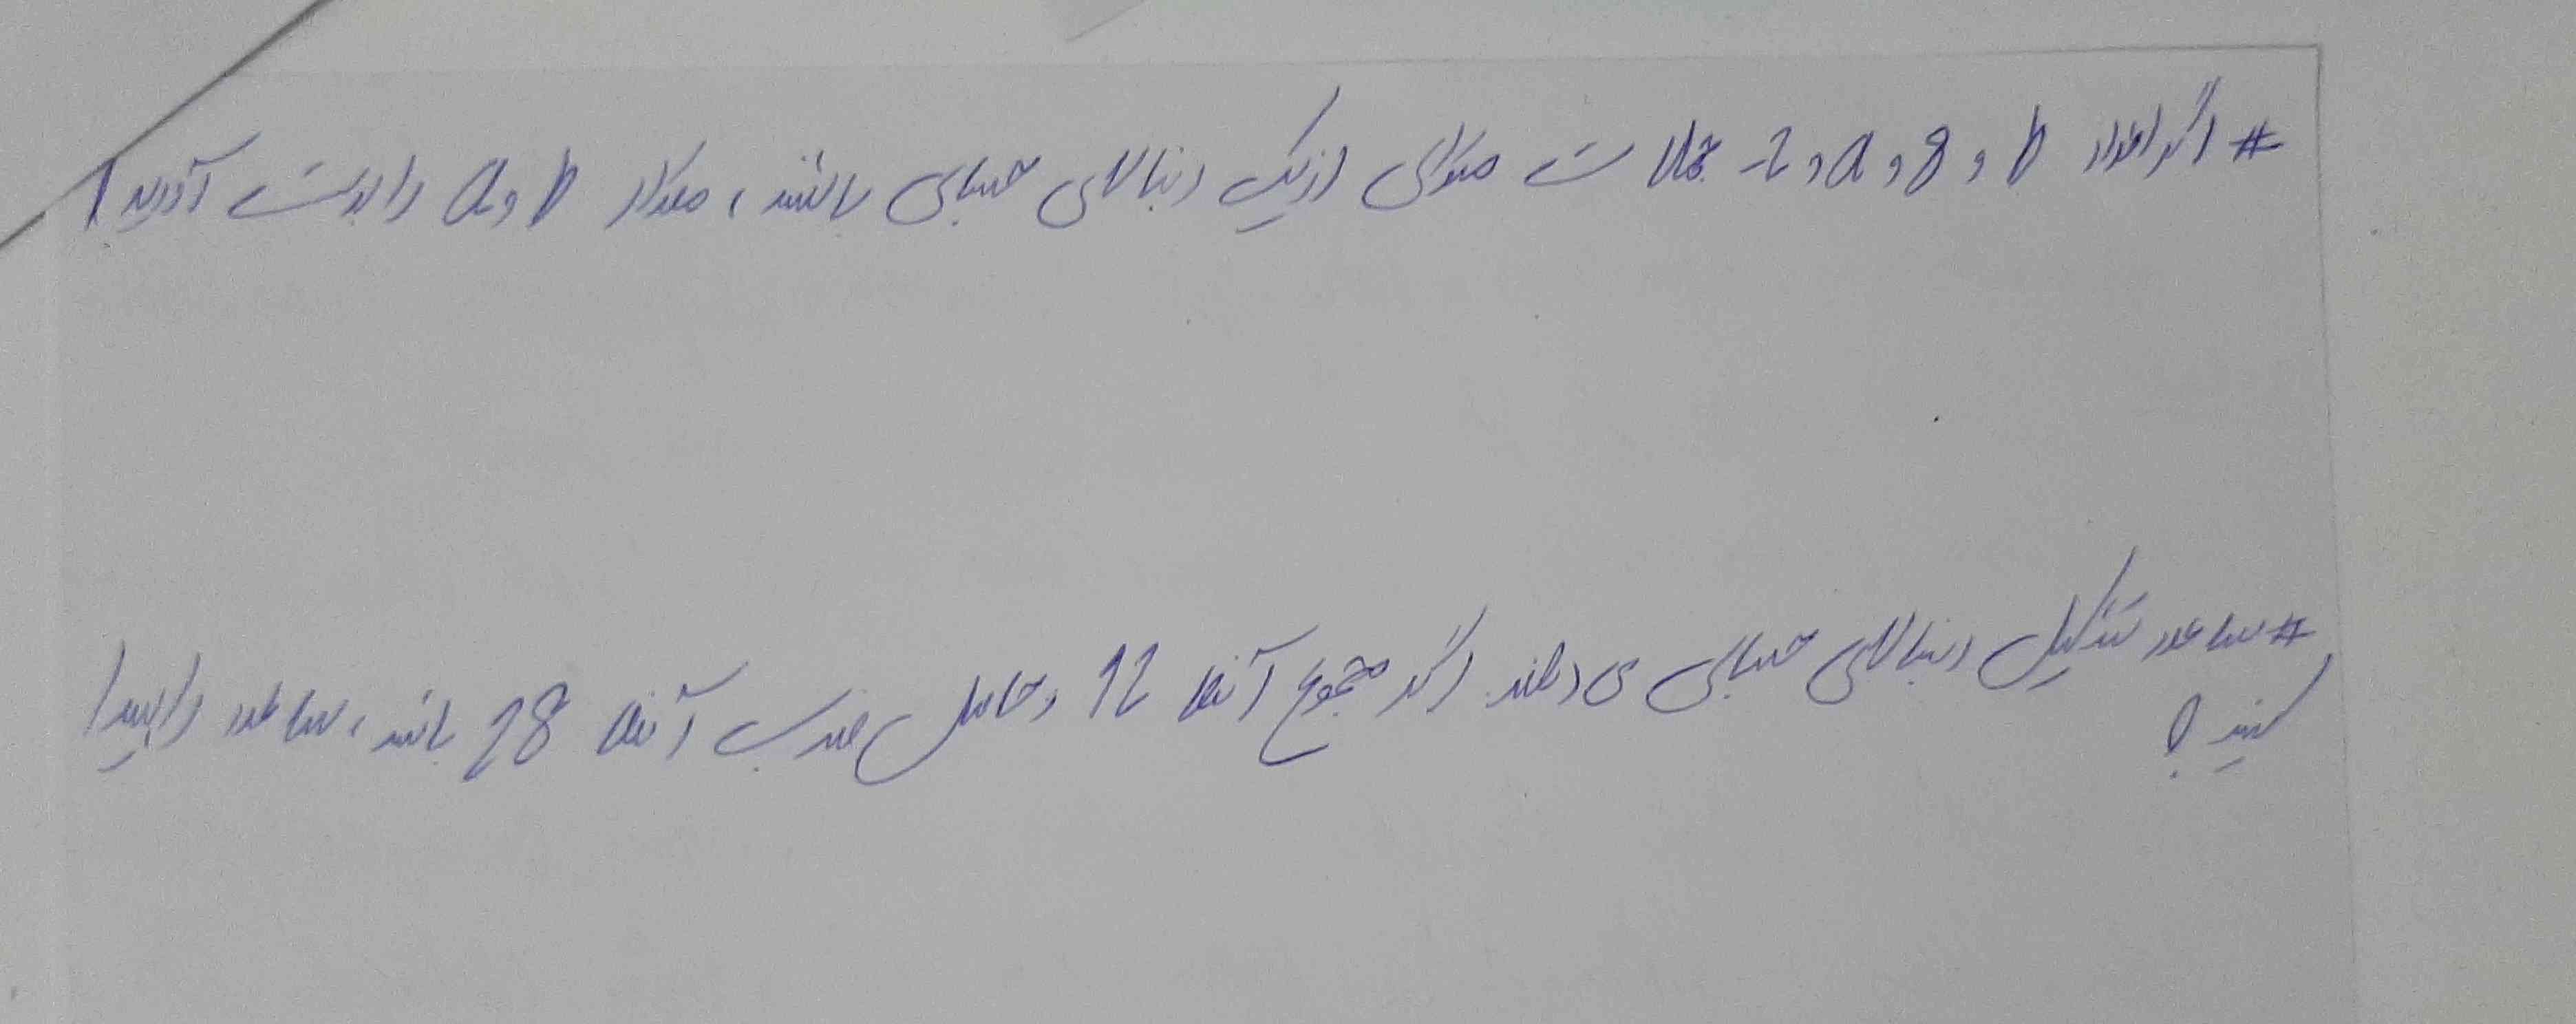 # اگر اعداد b و 8 و a و 2- جملات متوالی از یک دنباله‌ی حسابی باشند، مقدار b و a را بدست آورید؟
# سه عدد تشکیل دنباله‌ی حسابی می‌دهند. اگر مجموع آنها 12 و حاصل ضرب آنها 28 باشد، سه عدد را پیدا
کنید؟